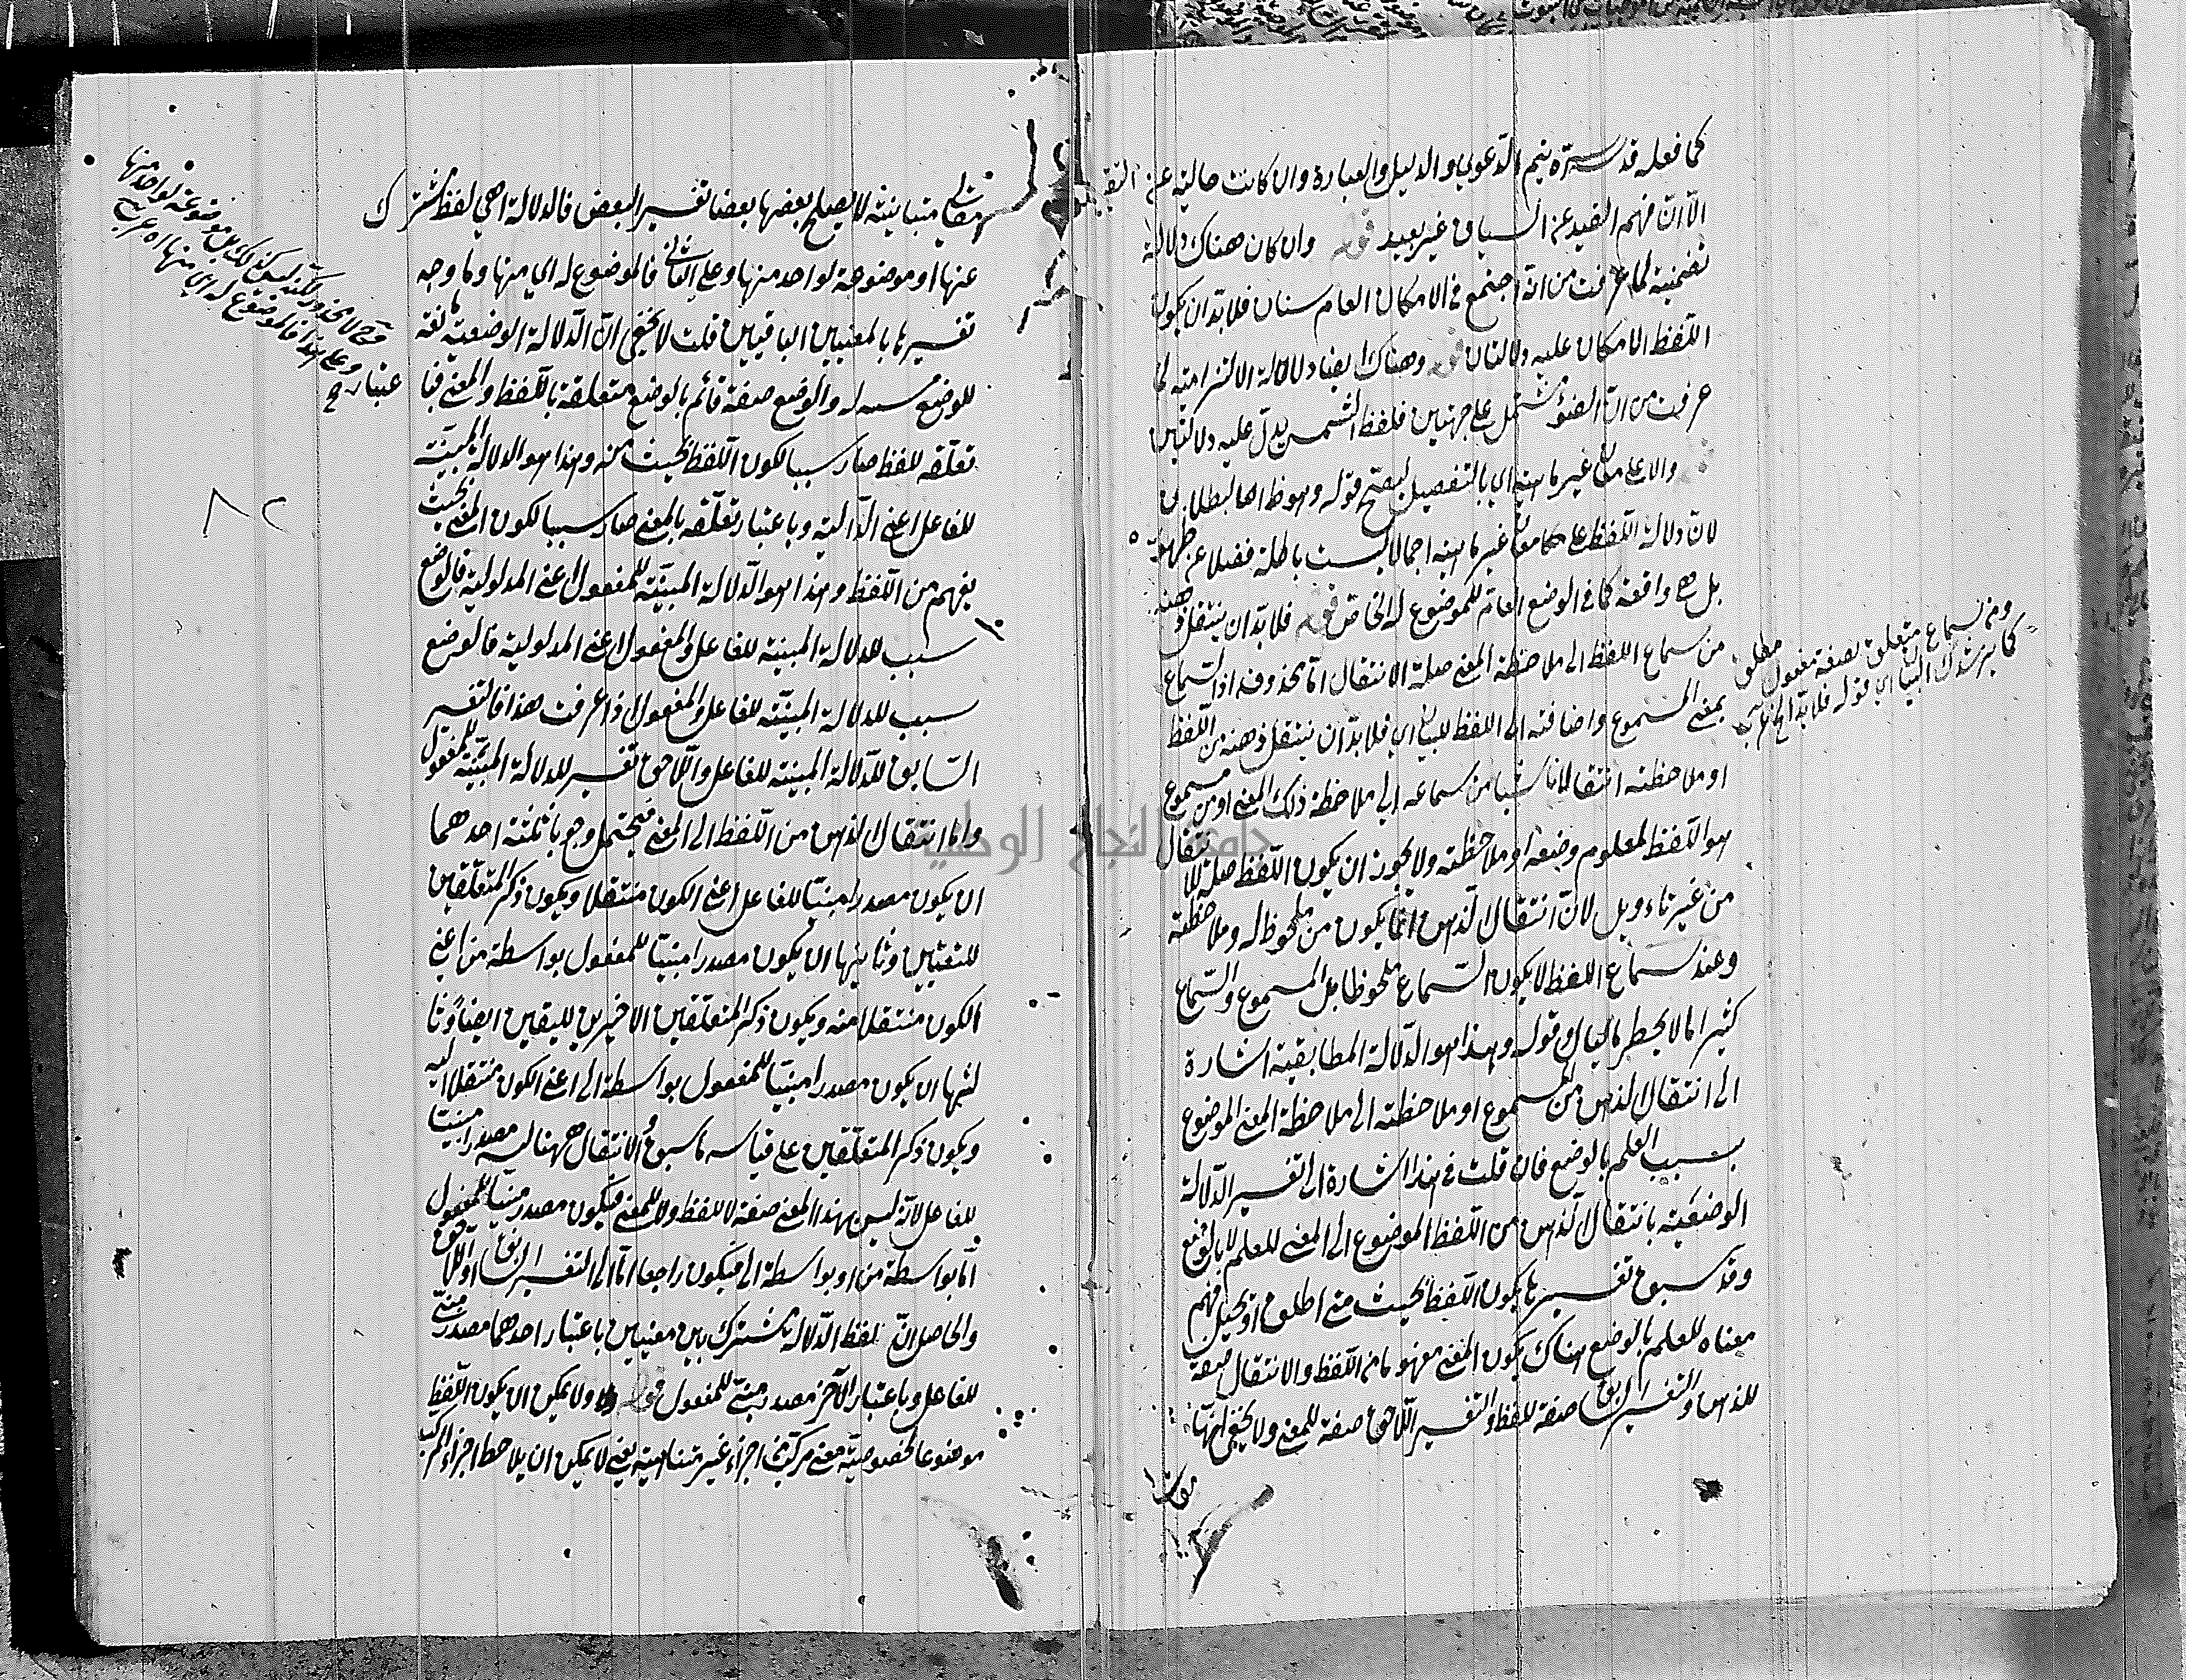 كما فعله قدس سره يتم الدعوى والدليل والعبارة وان كانت خالية عن
الا ان فهم القيد عن السباق غير بعيد قوله وان كان هناك دلالة
تضمنية لما عرفت من انه اجتمع في الامكان العام سنان فلا بد ان يكون
اللفظ الامكان عليه دلالتان قوله وهناك ايضا دلالة الالتزامية لما
عرفت من ان الضوء مشتمل على جهتين فلفظ الشمس يدل عليه دلالتين
والا على معان غير متناهية اي بالتفصيل ليصح قوله وهو ظاهر البطلان
لان دلالة اللفظ على معان غير متناهية اجمالا ليست باطلة فضلا عن ظهوره
بل هي واقعة كما في الوضع العام للموضوع له الخاص قوله فلا بد ان ينتقل ذهنه
من سماع اللفظ الى ملاحظة المعنى صلة الانتقال اما محذوفة اذ السماع
بمعنى المسموع واضافته الى اللفظ للبيان اي فلا بد ان ينتقل ذهنه من اللفظ
او ملاحظته انتقالا ناشيا من سماعه الى ملاحظة ذلك المعنى او من مسموع
هو اللفظ المعلوم وضعه او ملاحظته ولا يجوز ان يكون اللفظ صلة للانتقال
من غير تاويل لان انتقال الذهن انما يكون من ملحوظ له وملاحظته
وعند سماع اللفظ لا يكون السماع ملحوظا بل المسموع والسماع
كثيرا ما لا يخطر بالبال قوله وهذا هو الدلالة المطابقية اشارة
الى انتقال الذهن من المسموع او ملاحظته الى ملاحظة المعنى الموضوع
بسبب العلم بالوضع فان قلت في هذا اشارة الى تفسير الدلالة
الوضعية بانتقال الذهن من اللفظ الموضوع الى المعنى للعلم بالوضع
وقد سبق تفسيرها بكون اللفظ بحيث متى اطلق او تخيل فهم
معناه للعلم بالوضع هناك بكون المعنى مفهوما من اللفظ والانتقال صفة
للذهن والتفسير السابق صفة للفظ والتفسير اللاحق صفة للمعنى ولا يخفى انها
ومن سماع متعلق بصفة مفعول مطلق
كما يرشدك اليه اي قوله فلا بد الخ
معاني متباينة لا يصلح بعضها بعضا تفسير البعض فالدلالة اهي لفظ مشترك
عنها او موضوعة لواحد منها وعلى الثاني فالموضوع له اي منها وما وجه
تفسيرها بالمعنيين الباقيين قلت لا يخفى ان الدلالة الوضعية تابعة
للوضع مسببه له والوضع صفة قائم بالوضع متعلقة باللفظ والمعنى فباعتبار
تعلقه للفظ صار سببا لكون اللفظ بحيث منه وهذا هو الدلالة المبنية
للفاعل اعني الدالية وباعتبار تعلقه بالمعنى صار سببا لكون المعنى بحيث
يفهم من اللفظ وهذا هو الدلالة المبنية للمفعول اعني المدلولية فالوضع
سبب للدلالة المبنية للفاعل والمفعول اعني المدلولية فالوضع
سبب للدلالة المبنية للفاعل والمفعول اذا عرفت هذا فالتفسير
السابق للدلالة المبنية للفاعل واللاحق تفسير للدلالة المبنية للمفعول
واما انتقال الذهن من اللفظ الى المعنى فيحتمل وجوها ثلثة احدهما
ان يكون مصدرا مبنيا للفاعل اعني الكون منتقلا ويكون ذكر المتعلقين
للتعيين وثانيها ان يكون مصدرا مبنيا للمفعول بواسطة من اعني
الكون منتقلا منه ويكون ذكر المتعلقين الاخيرين للتعيين ايضا وثا
لثها ان يكون مصدرا مبنيا للمفعول بواسطة الى اعني الكون منتقلا اليه
ويكون ذكر المتعلقين على قياس ما سبق والانتقال ههنا ليس مصدرا مبنيا
للفاعل لانه ليس بهذا المعنى صفة لا للفظ ولا للمعنى فيكون مصدر مبنيا للمفعول
اما بواسطة من او بواسطة الى فيكون راجعا اما الى التفسير السابق او اللاحق
والحاصل ان لفظ الدلالة مشترك بين معنيين باعتبار احدهما مصدر مبني
للفاعل وباعتبار الآخر مصدر مبني للمفعول قوله ولا يمكن ان يكون اللفظ
موضوعا بخصوصية معنى مركب من اجزاء غير متناهية يعني لا يمكن ان يلاحظ اجزاء المركب
٨٢
جامعة النجاح الوطنية